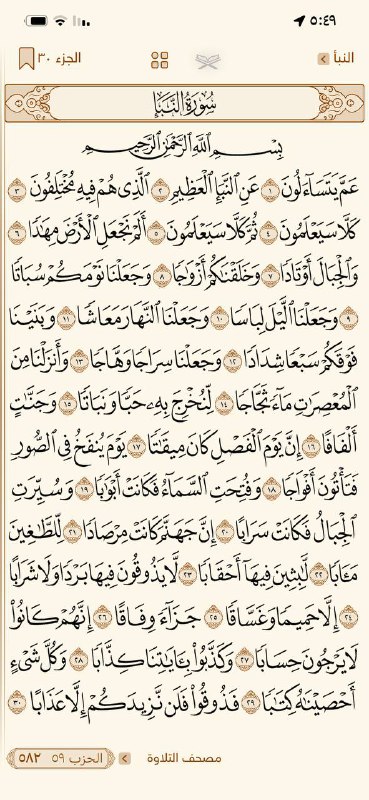 ٥:٤٩
النبأ
الجزء ٣٠
سُورَةُ النَّبَإِ
بِسْمِ اللَّهِ الرَّحْمَٰنِ الرَّحِيمِ
عَمَّ يَتَسَاءَلُونَ ١ عَنِ النَّبَإِ الْعَظِيمِ ٢ الَّذِي هُمْ فِيهِ مُخْتَلِفُونَ ٣
كَلَّا سَيَعْلَمُونَ ٤ ثُمَّ كَلَّا سَيَعْلَمُونَ ٥ أَلَمْ نَجْعَلِ الْأَرْضَ مِهَٰدًا ٦
وَالْجِبَالَ أَوْتَادًا ٧ وَخَلَقْنَٰكُمْ أَزْوَٰجًا ٨ وَجَعَلْنَا نَوْمَكُمْ سُبَاتًا
٩ وَجَعَلْنَا الَّيْلَ لِبَاسًا ١٠ وَجَعَلْنَا النَّهَارَ مَعَاشًا ١١ وَبَنَيْنَا
فَوْقَكُمْ سَبْعًا شِدَادًا ١٢ وَجَعَلْنَا سِرَاجًا وَهَّاجًا ١٣ وَأَنزَلْنَا مِنَ
الْمُعْصِرَٰتِ مَاءً ثَجَّاجًا ١٤ لِّنُخْرِجَ بِهِۦ حَبًّا وَنَبَاتًا ١٥ وَجَنَّٰتٍ
أَلْفَافًا ١٦ إِنَّ يَوْمَ الْفَصْلِ كَانَ مِيقَٰتًا ١٧ يَوْمَ يُنفَخُ فِي الصُّورِ
فَتَأْتُونَ أَفْوَاجًا ١٨ وَفُتِحَتِ السَّمَاءُ فَكَانَتْ أَبْوَٰبًا ١٩ وَسُيِّرَتِ
الْجِبَالُ فَكَانَتْ سَرَابًا ٢٠ إِنَّ جَهَنَّمَ كَانَتْ مِرْصَادًا ٢١ لِّلطَّٰغِينَ
مَـَٔابًا ٢٢ لَّٰبِثِينَ فِيهَا أَحْقَابًا ٢٣ لَّا يَذُوقُونَ فِيهَا بَرْدًا وَلَا شَرَابًا
٢٤ إِلَّا حَمِيمًا وَغَسَّاقًا ٢٥ جَزَاءً وِفَاقًا ٢٦ إِنَّهُمْ كَانُوا
لَا يَرْجُونَ حِسَابًا ٢٧ وَكَذَّبُوا بِـَٔايَٰتِنَا كِذَّابًا ٢٨ وَكُلَّ شَيْءٍ
أَحْصَيْنَٰهُ كِتَٰبًا ٢٩ فَذُوقُوا فَلَن نَّزِيدَكُمْ إِلَّا عَذَابًا ٣٠
مصحف التلاوة
الحزب ٥٩ ٥٨٢